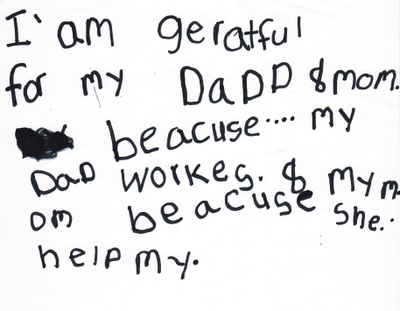 I' am geratful
for my DaDD & mom.
beacuse.... my
DaD workes. & my m
om beacuse she..
help my.